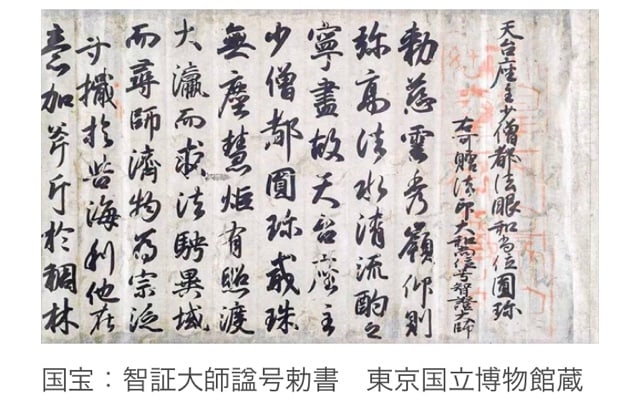 天台座主少僧都法眼和尚位圓珎
右可贈法印大和尚位号智證大師
勅慈雲秀嶺仰則
弥高法水清流酌之
寧盡故天台座主
少僧都圓珎戒珠
無塵慧炬有照渡
大瀛而求法騁異域
而尋師濟物為宗泛
寸檝於苦海利他在
意加斧斤於稠林
国宝：智証大師諡号勅書　東京国立博物館蔵